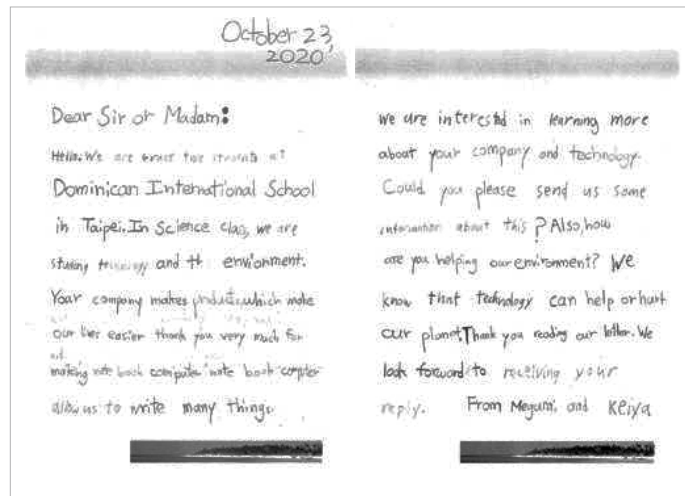 October 23,
2020
Dear Sir or Madam:
Hello. We are students at
Dominican International School
in Taipei. In Science class, we are
studing and the envionment.
Your company makes products which make
our lives easier thank you very much for
making note book computer note book
allow us to write many things
we are interestd in learning more
about your company and technology.
Could you please send us some
information about this? Also, how
are you helping our environment? We
know that technology can help or hurt
our planet. Thank you reading our letter. We
look forward to receiving your
reply. From Megumi, and Keiya